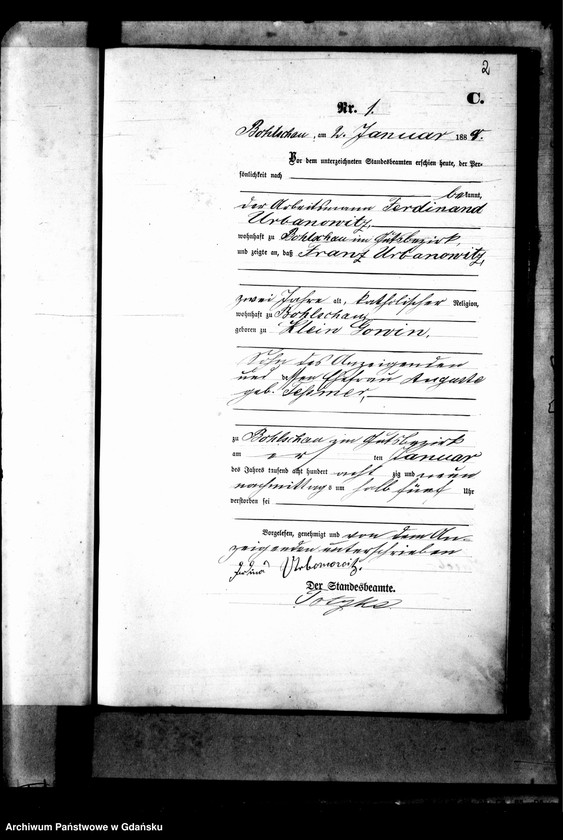 2
C.
Nr. 1.
Bohlschau, am 2. Januar 1889.
Vor dem unterzeichneten Standesbeamten erschien heute, der Per-
sönlichkeit nach
bekannt,
der Arbeitsmann Ferdinand
Urbanowitz,
wohnhaft zu Bohlschau im Gutsbezirk,
und zeigte an, daß Franz Urbanowitz,
zwei Jahre alt, katholischer Religion,
wohnhaft zu Bohlschau,
geboren zu Klein Gowin,
Sohn des Anzeigenden
und Ehefrau Auguste
geb.
zu Bohlschau im Gutsbezirk
am ersten Januar
des Jahres tausend acht hundert achtzig und neun
nachmittags um halb fünf Uhr
verstorben sei
Vorgelesen, genehmigt und von dem An-
zeigenden unterschrieben
Urbanowitz.
Der Standesbeamte.
Archiwum Państwowe w Gdańsku